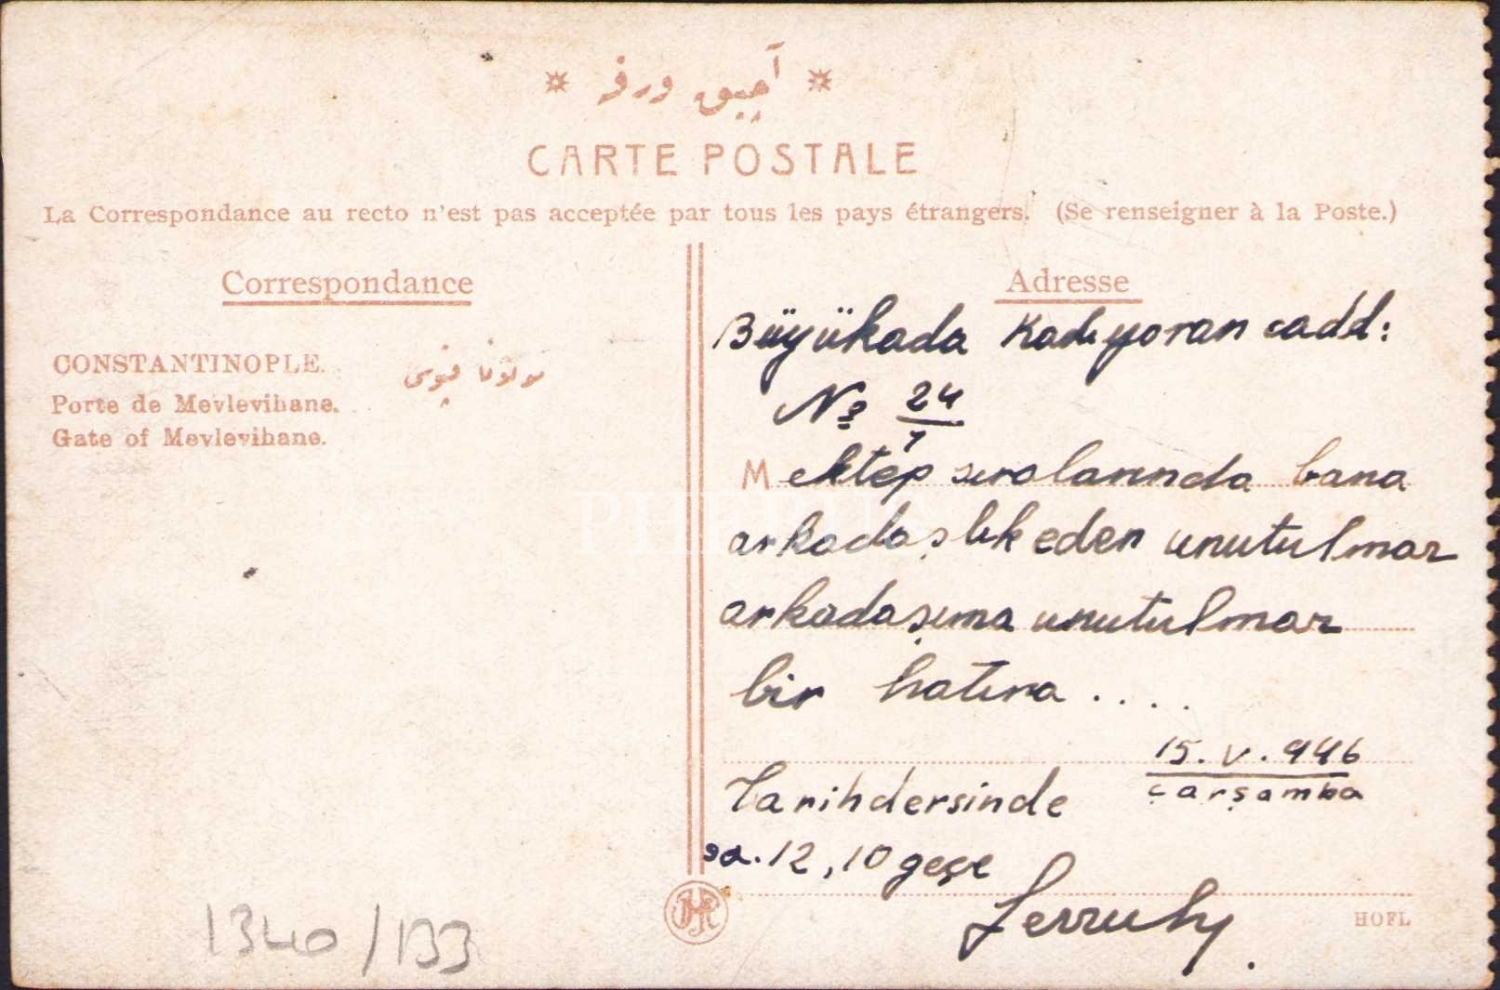 آچیق ورقه
CARTE POSTALE
La Correspondance au recto n'est pas acceptée par tous les pays étrangers. (Se renseigner à la Poste.)
Correspondance
CONSTANTINOPLE.
Porte de Mevlevihane.
Gate of Mevlevihane.
Adresse
Büyükada Kadıyoran cadd:
No 24/1
Mektep sıralarında bana
arkadaşlık eden unutulmaz
arkadaşıma unutulmaz
bir hatıra ....
15.V.946
çarşamba
Tarih dersinde
sa. 12,10 geçe
HOFL
1340/133